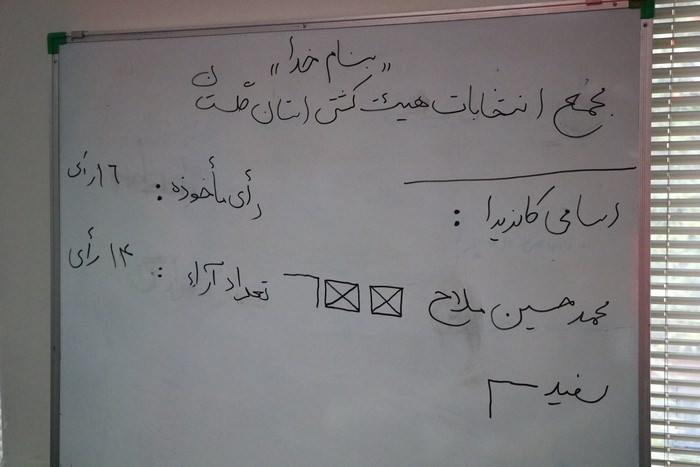 " بنام خدا "
مجمع انتخابات هیئت کشتی استان گلستان
اسامی کاندیدا :
رأی مأخوذه : ۱۶ رأی
محمد حسین ملاح
تعداد آراء : ۱۴ رأی
سفید